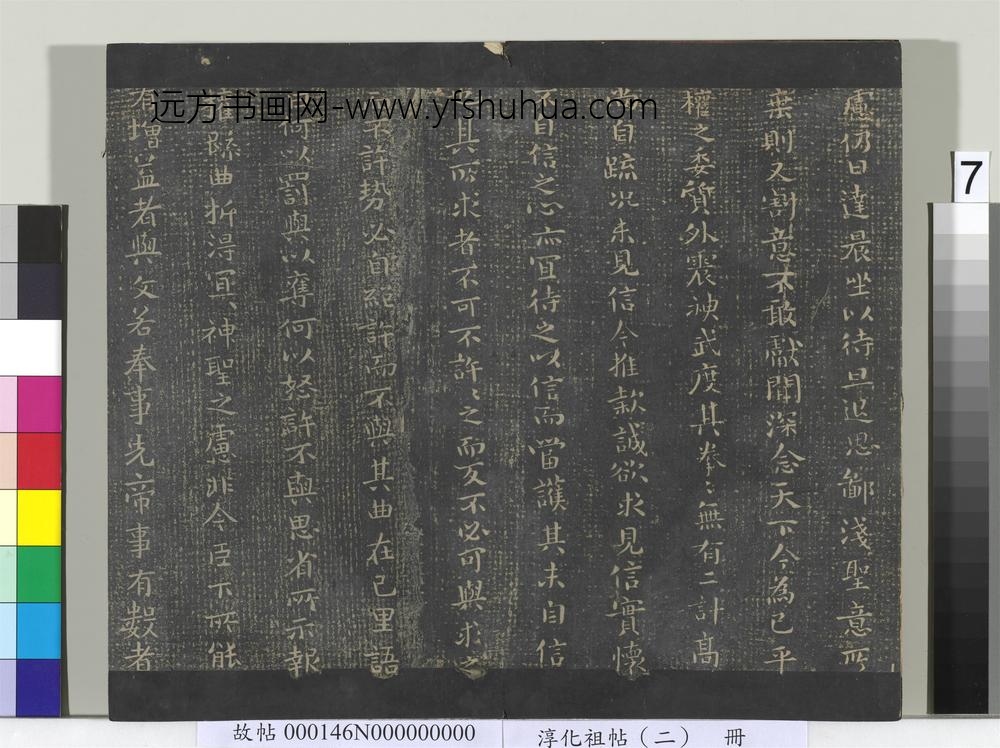 慮仿日達晨坐以待旦退思鄙淺聖意所
棄則又割意不敢獻聞深念天下今為已平
權之委質外震神武度其拳〻無有二計高
尚自疏況未見信今推款誠欲求見信實懷
不自信之心亦宜待之以信而當護其未自信
其所求者不可不許〻之而反不必可與求之
不許勢必自絕許而不與其曲在己里語
何以罰與以奪何以怒許不與思省所示報
疏曲折得宜神聖之慮非今臣下所能
有增益者與文若奉事先帝事有數者
远方书画网-www.yfshuhua.com
7
故帖 000146N000000000
淳化祖帖（二） 冊